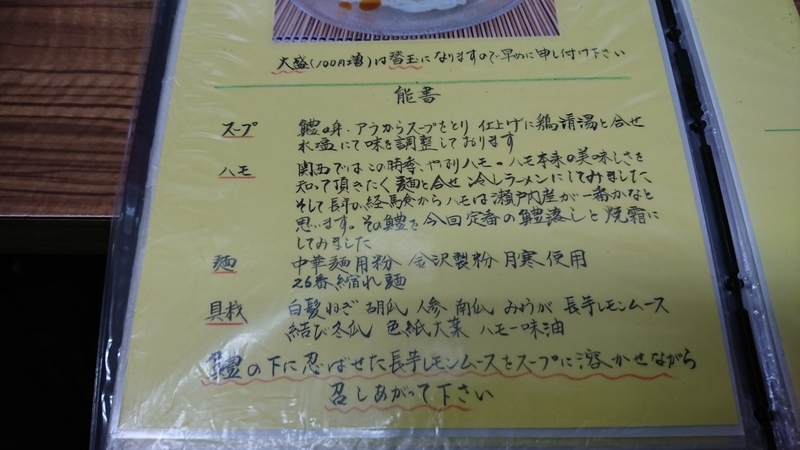 大盛(100円増)は替玉になりますので早めに申し付け下さい
能書
スープ 鱧の身・アラからスープをとり 仕上げに鶏清湯と合せ
水塩にて味を調整しております
ハモ 関西ではこの時季、やはりハモ。ハモ本来の美味しさを
知って頂きたく麺と合せ冷しラーメンにしてみました
そして長年の経験からハモは瀬戸内産が一番かなと
思います。その鱧を今回定番の鱧落しと焼霜に
してみました
麺 中華麺用粉 金沢製粉 月寒使用
26番縮れ麺
具材 白髪ねぎ 胡瓜 人参 南瓜 みょうが 長芋レモンムース
結び冬瓜 色紙大葉 ハモ一味油
鱧の下に忍ばせた長芋レモンムースをスープに溶かせながら
召しあがって下さい